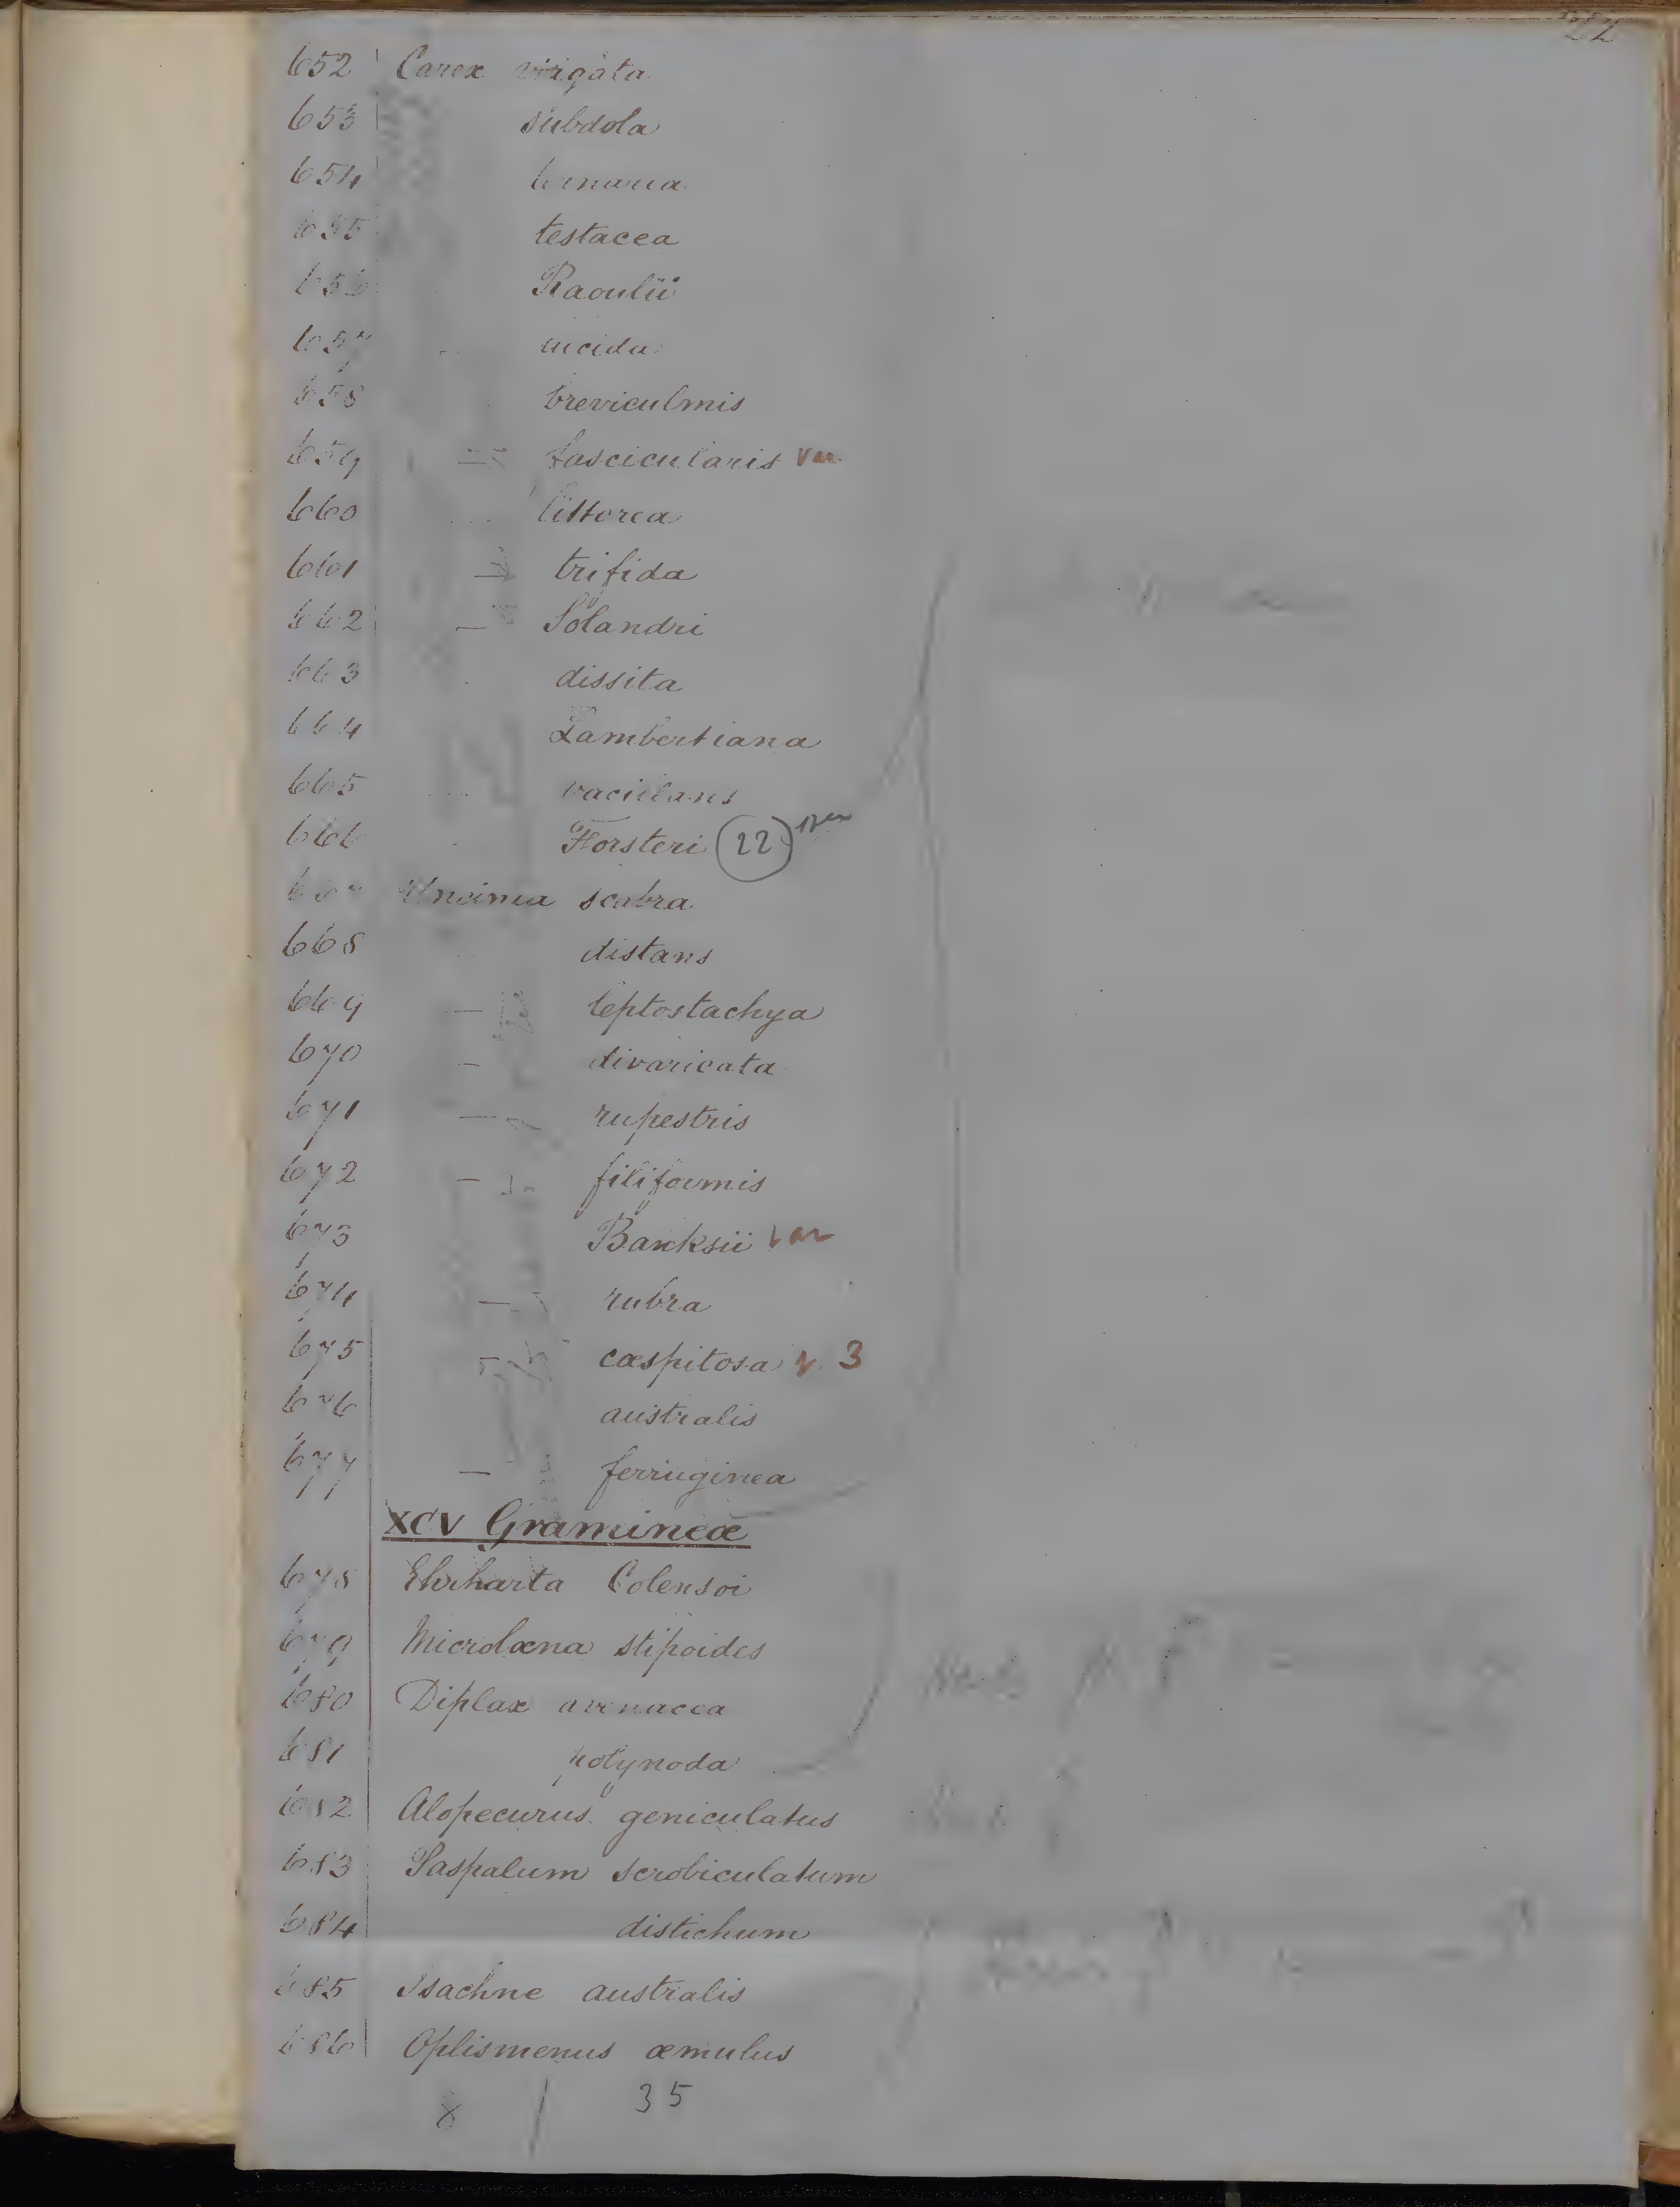 22
652 Carex virigata
653 subdola
654 ternaria
655 testacea
656 Raoulii
657 lucida
658 breviculmis
659 — fascicularis var.
660 littorea
661 — trifida
662 — Solandri
663 dissita
664 Lambertiana
665 vacillans
666 Forsteri (22)
667 Uncinia scabra
668 distans
669 — leptostachya
670 — divaricata
671 — rupestris
672 — filiformis
673 Bancksii var
674 — rubra
675 — cæspitosa v. 3
676 australis
677 — ferruginea
XCV Gramineæ
678 Ehrharta Colensoi
679 Microlæna stipoides
680 Diplax avenacea
681 polynoda
682 Alopecurus geniculatus
683 Paspalum scrobiculatum
684 distichum
685 Isachne australis
686 Oplismenus æmulus
8 / 35